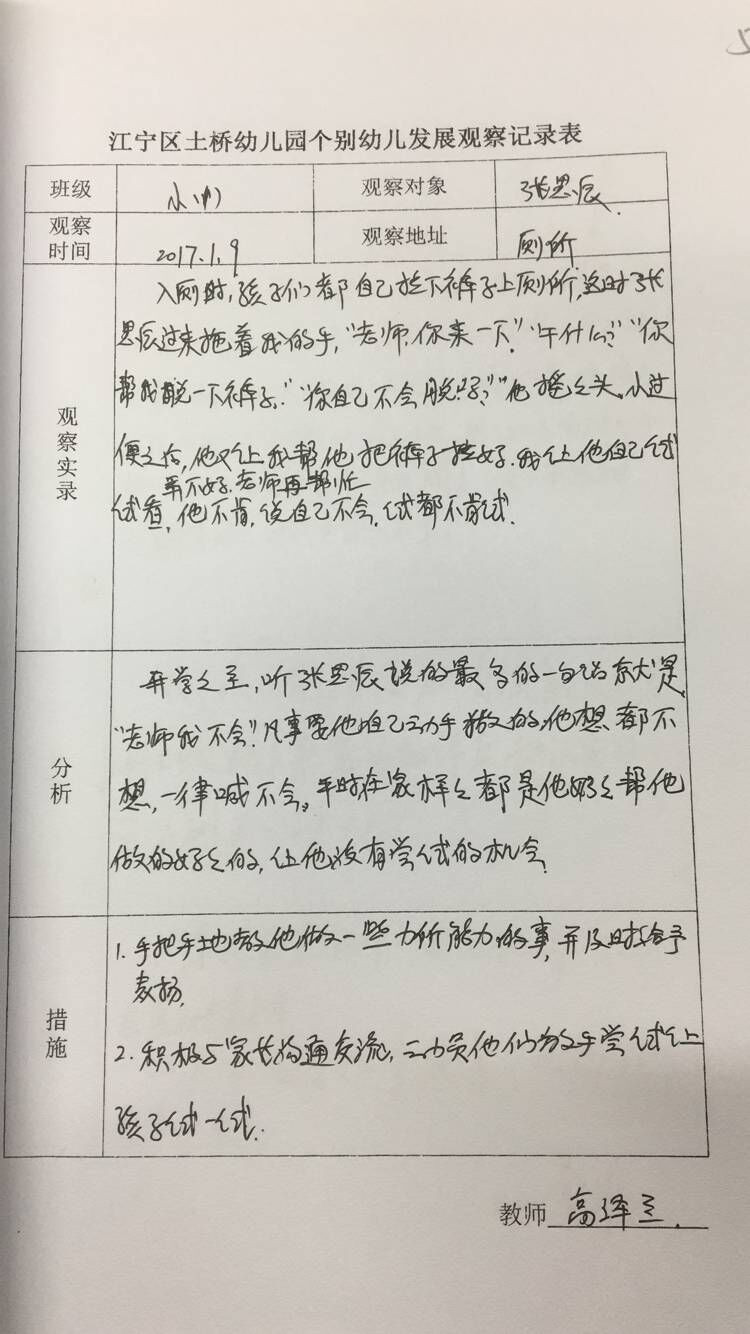 江宁区土桥幼儿园个别幼儿发展观察记录表
班级 小(1) 观察对象 张思辰
观察时间 2017.1.9 观察地址 厕所
观察实录
入厕时,孩子们都自己拉下裤子上厕所,这时张
思辰过来拖着我的手,“老师,你来一下”“干什么?”“你
帮我脱一下裤子。”“你自己不会脱吗?”他摇摇头。小过
便之后,他又让我帮他把裤子拉好.我让他自己试
弄不好,老师再帮忙
试看,他不肯,说自己不会,试都不肯试.
分析
开学之至,听张思辰说的最多的一句话就是
“老师我不会”!凡事要他自己动手做的,他想都不
想,一律喊不会。平时在家样样都是他奶奶帮他
做的好好的,让他没有尝试的机会.
措施
1.手把手地教他做一些力所能力的事,并及时给予
表扬.
2.积极与家长沟通交流,动员他们放手尝试让
孩子试一试.
教师 高泽兰.